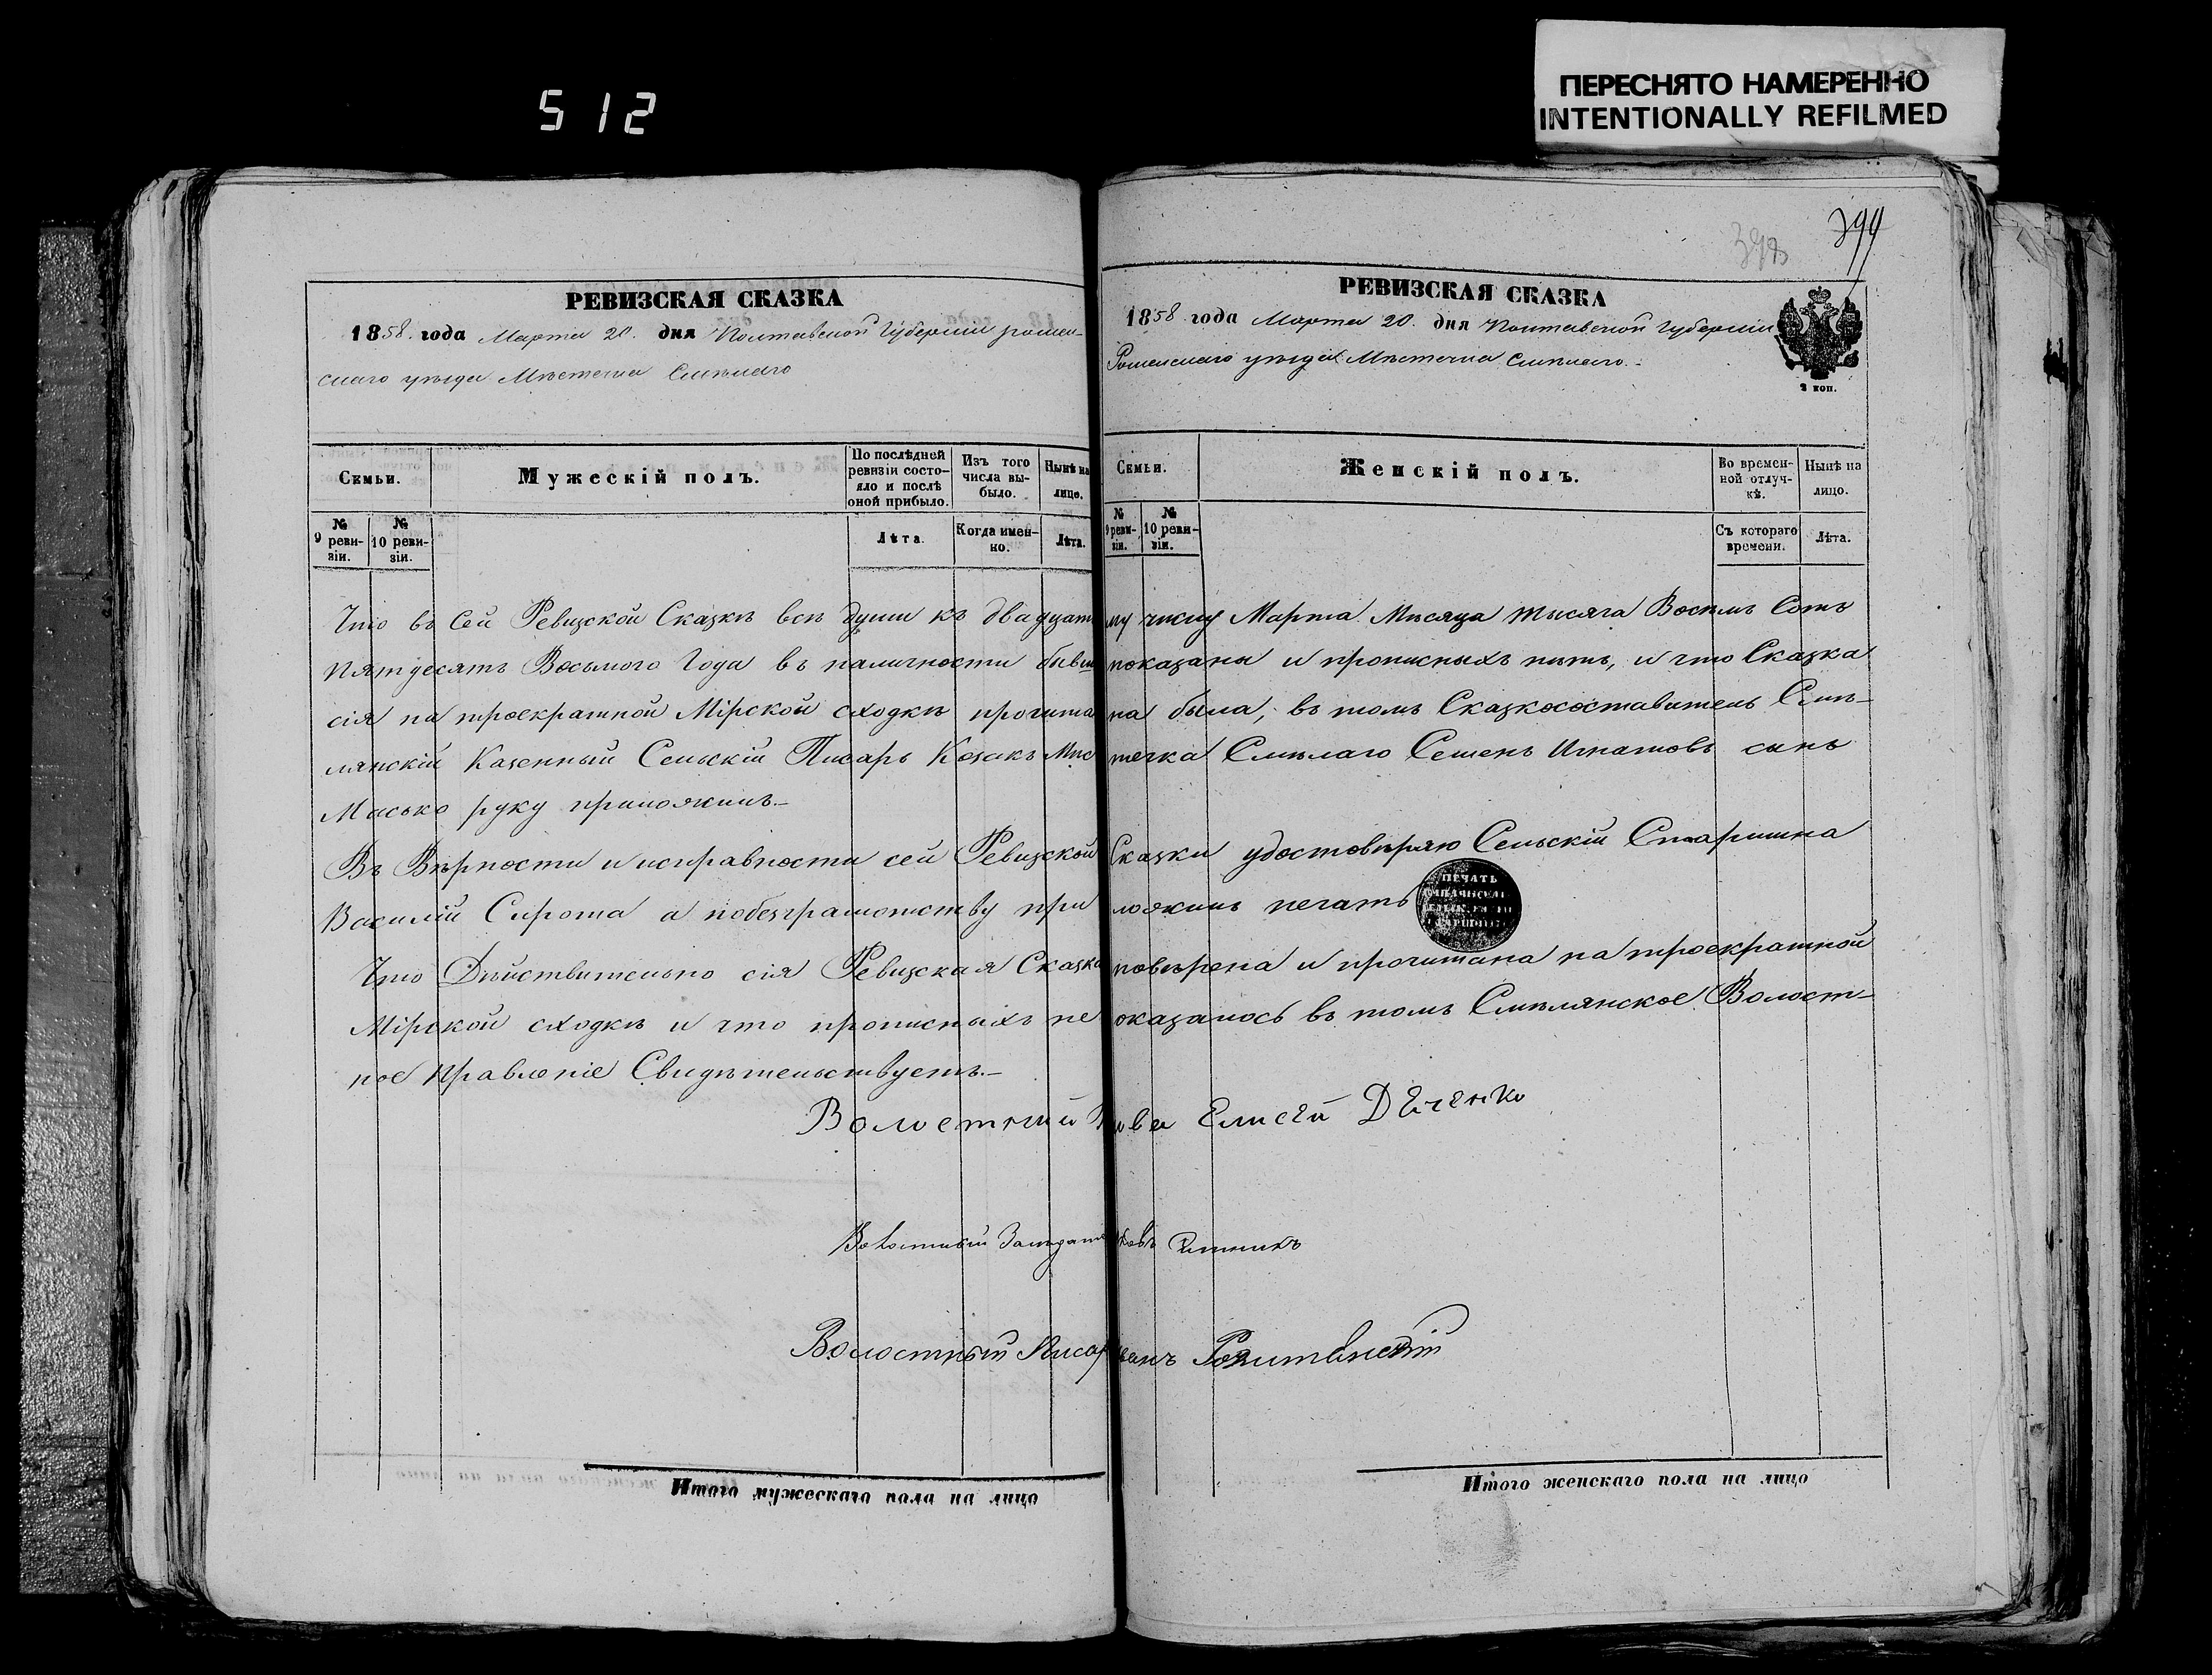 512
ПЕРЕСНЯТО НАМЕРЕННО
INTENTIONALLY REFILMED
394
РЕВИЗСКАЯ СКАЗКА
1858. года Марта 20. дня Полтавской Губерніи ромен-
скаго уѣзда Мѣстечка Смѣлаго
Семьи.
Мужескій полъ.
По послѣдней ревизіи состо-яло и послѣ оной прибыло.
Изъ того числа вы-было.
Нынѣ на лице.
№ 9 реви-зіи.
№ 10 реви-зіи.
Лѣта.
Когда имен-но.
Лѣта.
РЕВИЗСКАЯ СКАЗКА
1858 года Марта 20. дня Полтавской Губерніи
Роменскаго уѣзда Мѣстечка Смѣлаго.
2 коп.
Семьи.
Женскій полъ.
Во времен-ной отлуч-кѣ.
Нынѣ на лицо.
№ 9 реви-зіи.
№ 10 реви-зіи.
Съ котораго времени.
Лѣта.
Что въ Сей Ревизской Сказкѣ всѣ души къ двадцатому числу Марта Мѣсяца тысяча Восемь Сотъ
Пятдесятъ Восьмого Года въ наличности бывш показаны и прописныхъ нѣтъ, и что Сказка
сія на троекратной Мірской сходкѣ прочитана была, въ томъ Сказкосоставитель Смѣ-
лянскій Казенный Сельскій Писарь Козакъ Мѣстечка Смѣлаго Семенъ Игнатовъ сынъ
Масько руку приложилъ.–
Въ Вѣрности и исправности сей Ревизской Сказки удостовѣряю Сельскій Старшина
Василій Сирота а побезграмотству приложилъ печать
ПЕЧАТЬ
Что Дѣйствительно сія Ревизская Сказка повѣрена и прочитана на троекратной
Мірской сходкѣ и что прописныхъ не оказалось въ томъ Смѣлянское Волост-
ное Правленіе Свидѣтельствуетъ.–
Волостний Голова Елисей
Волостный
Волостный Писарь
Итого мужескаго пола на лицо
Итого женскаго пола на лицо